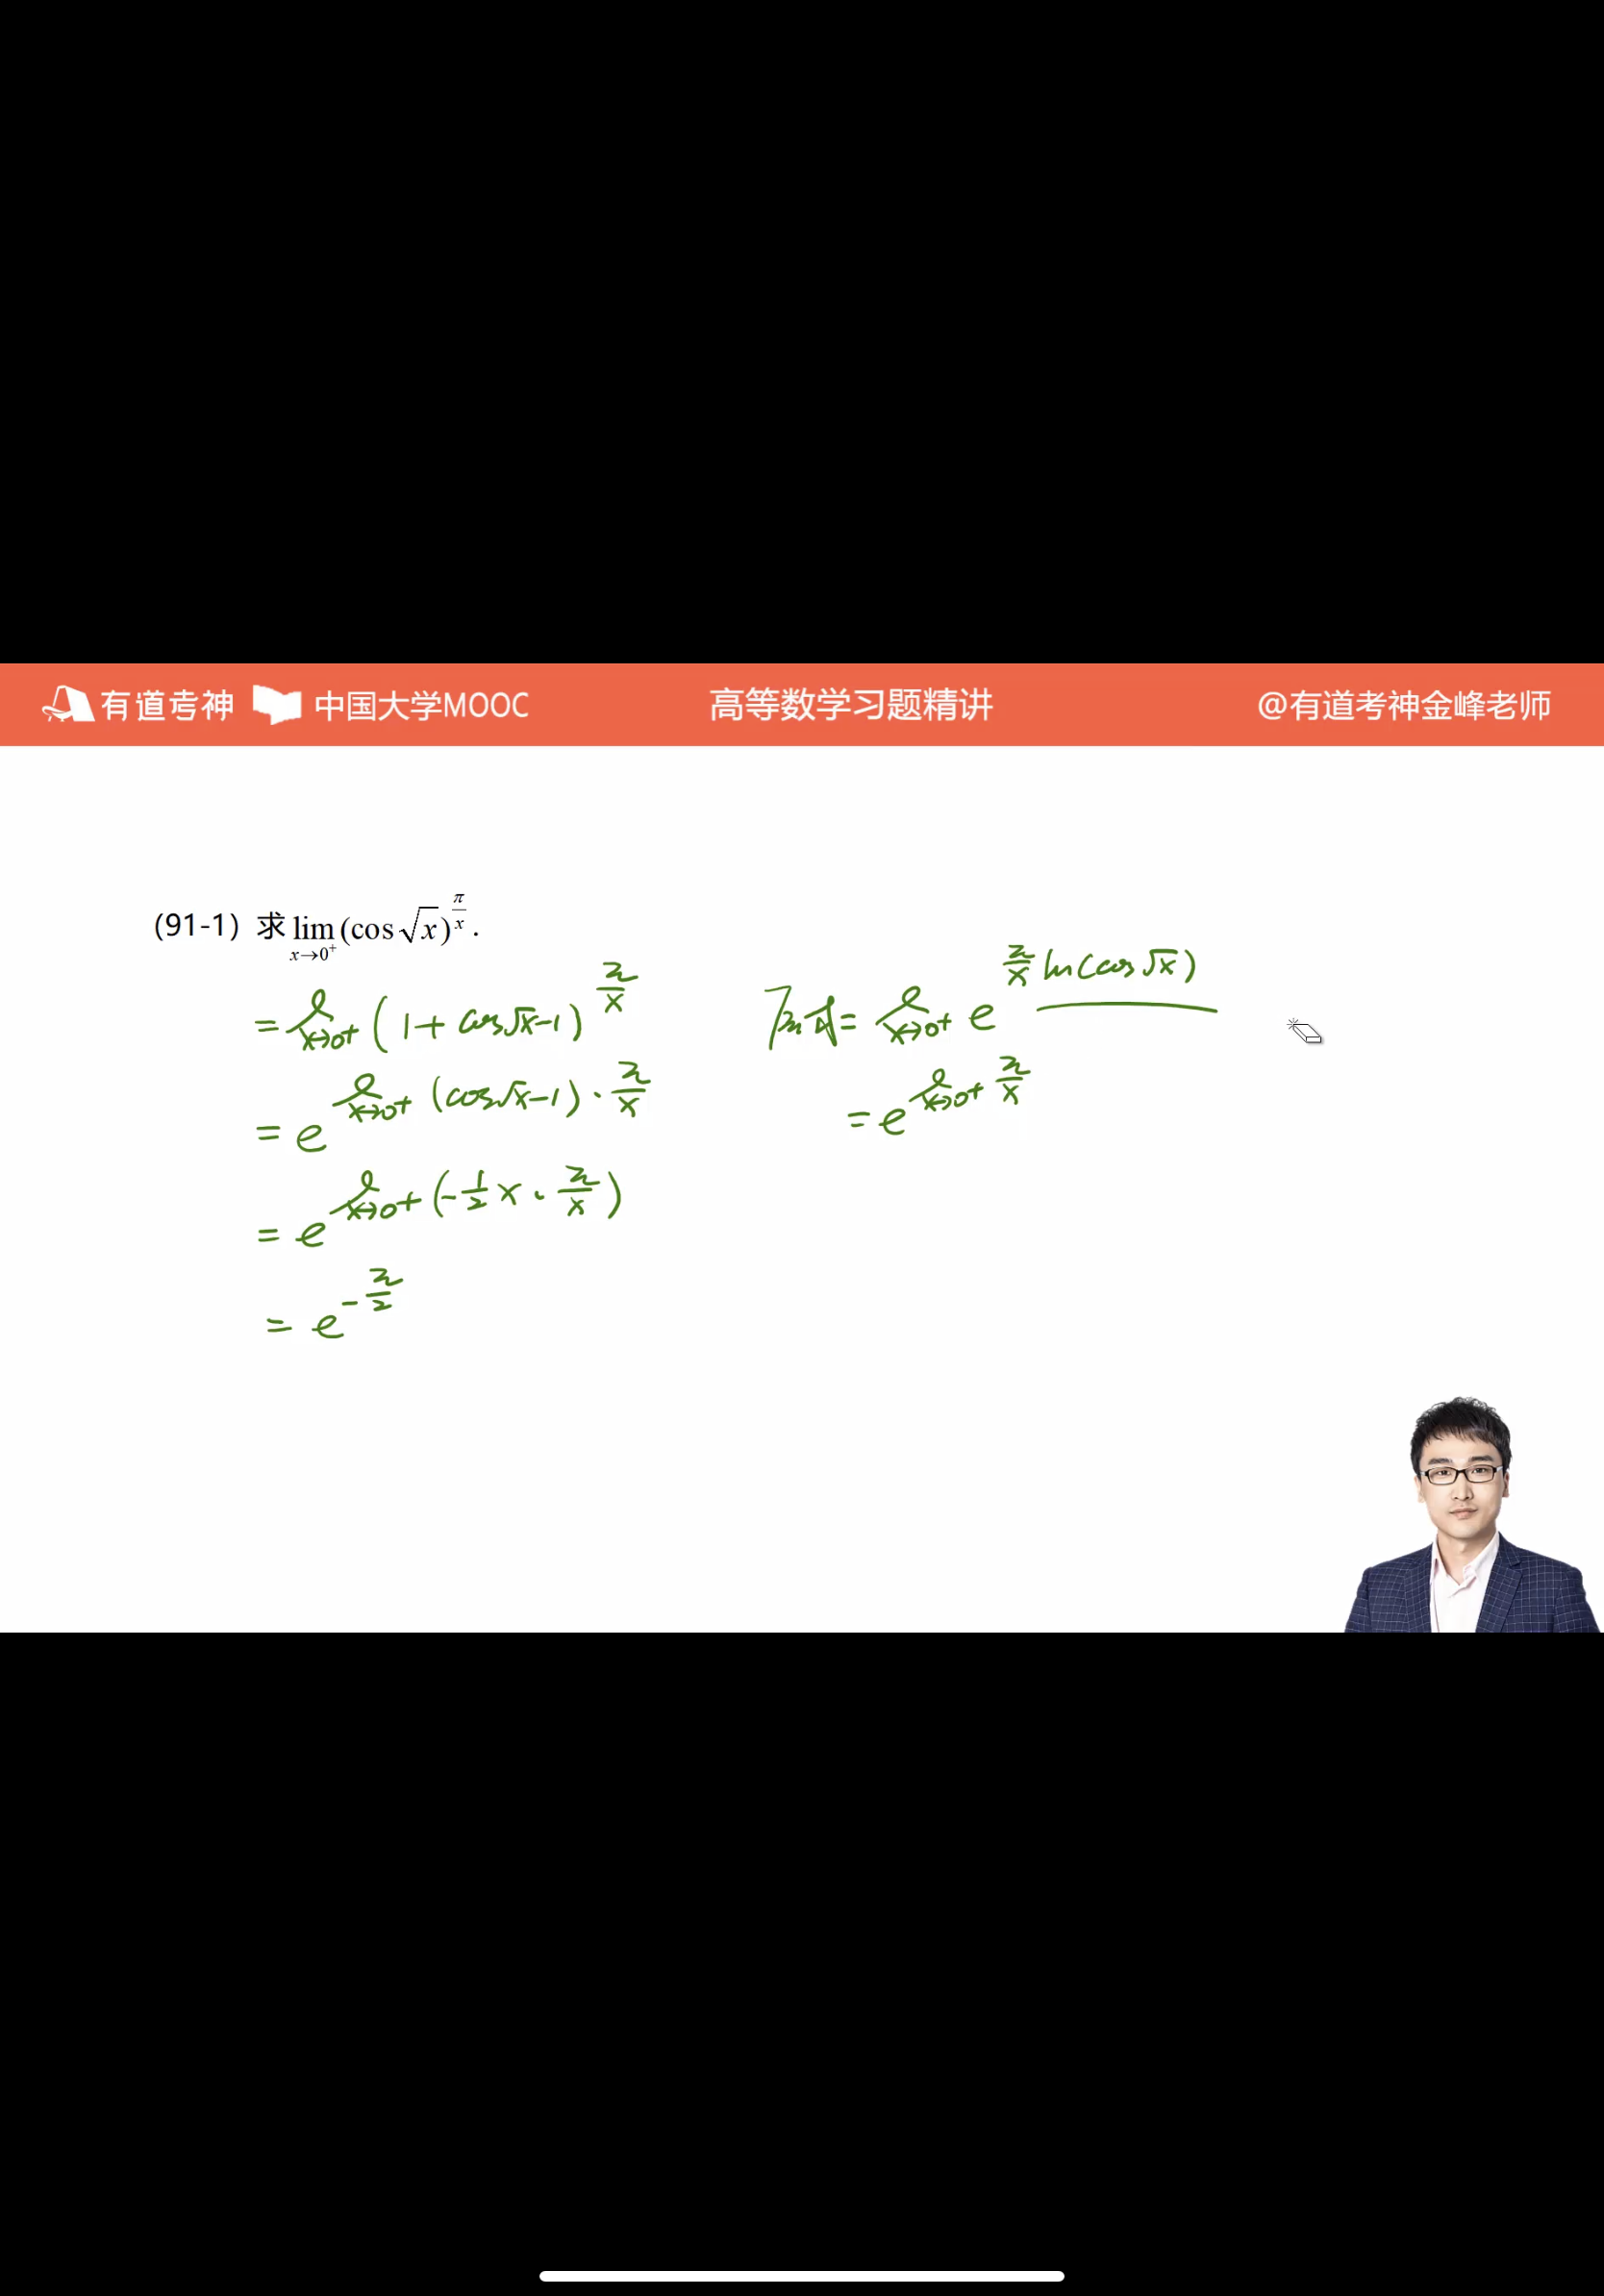 有道考神 中国大学MOOC 高等数学习题精讲 @有道考神金峰老师
(91-1) 求 lim_{x→0⁺} (cos √x)^{π/x}.
= lim_{x→0+} (1 + cos√x - 1)^{π/x}
= e^{lim_{x→0+} (cos√x - 1) · π/x}
= e^{lim_{x→0+} (-1/2 x · π/x)}
= e^{-π/2}
原式 = lim_{x→0+} e^{π/x ln(cos √x)}
= e^{lim_{x→0+} π/x}